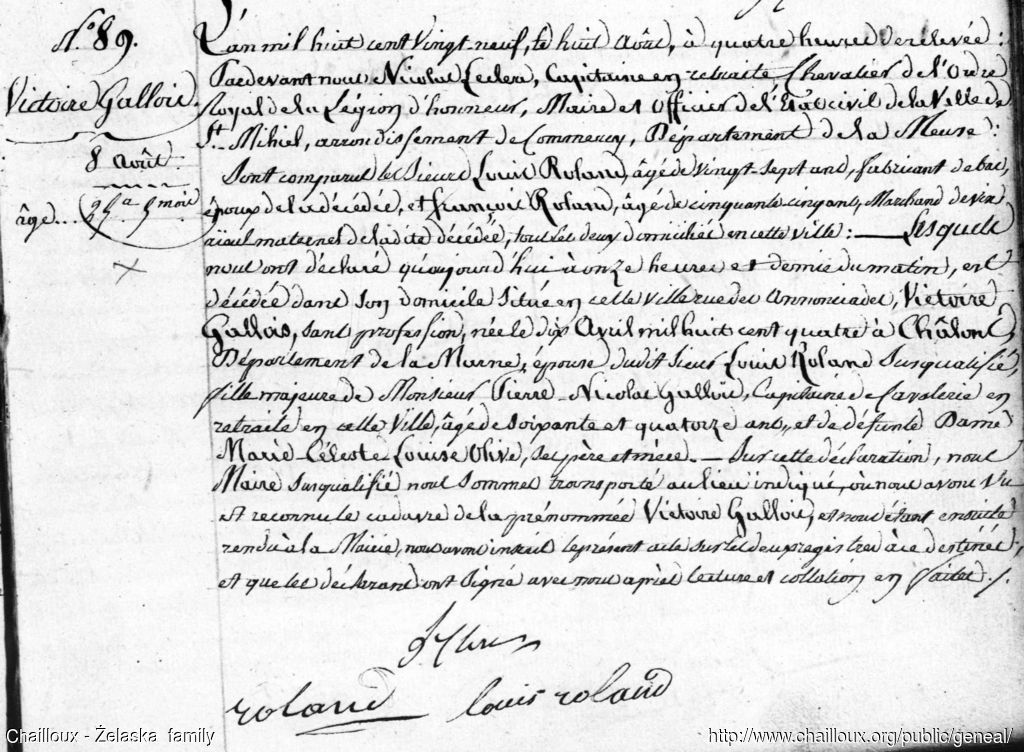 N.° 89.
Victoire Gallois.
8 Août
âgé... 25 a 5 mois
L'an mil huit cent vingt-neuf, le huit Août, à quatre heures de relevée :
Pardevant nous Nicolas Leclerc, Capitaine en retraite, Chevalier de l'Ordre
royal de la Légion d'honneur, Maire et Officier de l'Etat civil de la Ville de
St. Mihiel, arrondissement de Commercy, Département de la Meuse :
Sont comparus les Sieurs Louis Roland, âgé de vingt-sept ans, fabricant de bas,
époux de la décédée, et françois Roland, âgé de cinquante cinq ans, Marchand de vin,
aïeul maternel de ladite décédée, tous les deux domiciliés en cette ville : — Lesquels
nous ont déclaré qu'aujourd'hui à onze heures et demie du matin, est
décédée dans son domicile situé en cette ville rue des Annonciades, Victoire
Gallois, sans profession, née le dix Avril mil huit cent quatre à Châlons,
Département de la Marne, épouse dudit Sieur Louis Roland susqualifié,
fille majeure de Monsieur Pierre-Nicolas Gallois, Capitaine de Cavalerie en
retraite en cette Ville, âgé de soixante et quatorze ans, et de défunte Dame
Marie-Céleste-Louise Olive, ses père et mère. — Sur cette déclaration, nous
Maire susqualifié nous sommes transporté au lieu indiqué, où nous avons vu
et reconnu le cadavre de la prénommée Victoire Gallois, et nous étant ensuite
rendu à la Mairie, nous avons inscrit le présent acte sur les deux registres à ce destinés,
et que les déclarans ont signé avec nous après lecture et collation en faites ./.
roland louis roland
Chailloux - Żelaska family http://www.chailloux.org/public/geneal/